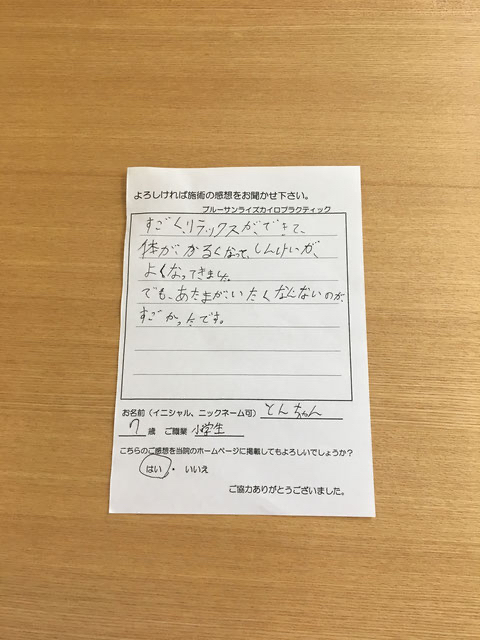 よろしければ施術の感想をお聞かせ下さい。
ブルーサンライズカイロプラクティック
すごくリラックスができて、
体が、かるくなって、しんけいが、
よくなってきました。
でも、あたまが、いたくなんないのが、
すごかったです。
お名前（イニシャル、ニックネーム可） とんちゃん
7 歳 ご職業 小学生
こちらのご感想を当院のホームページに掲載してもよろしいでしょうか？
はい ・ いいえ
ご協力ありがとうございました。